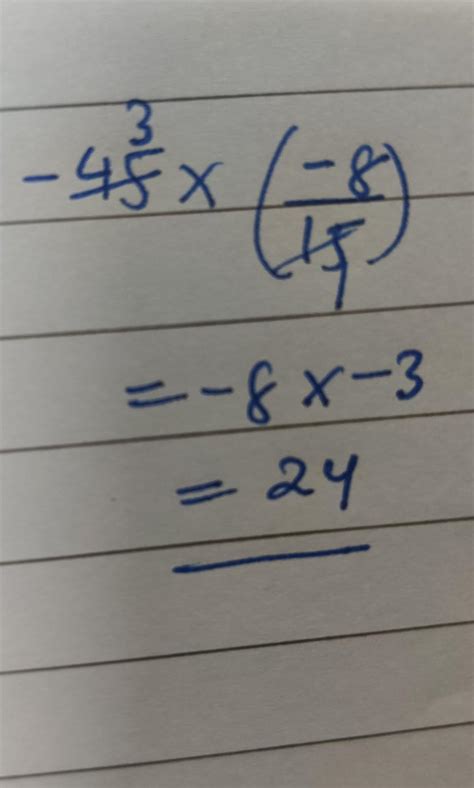 3
-45 × (-8/15)
1
= -8 × -3
= 24